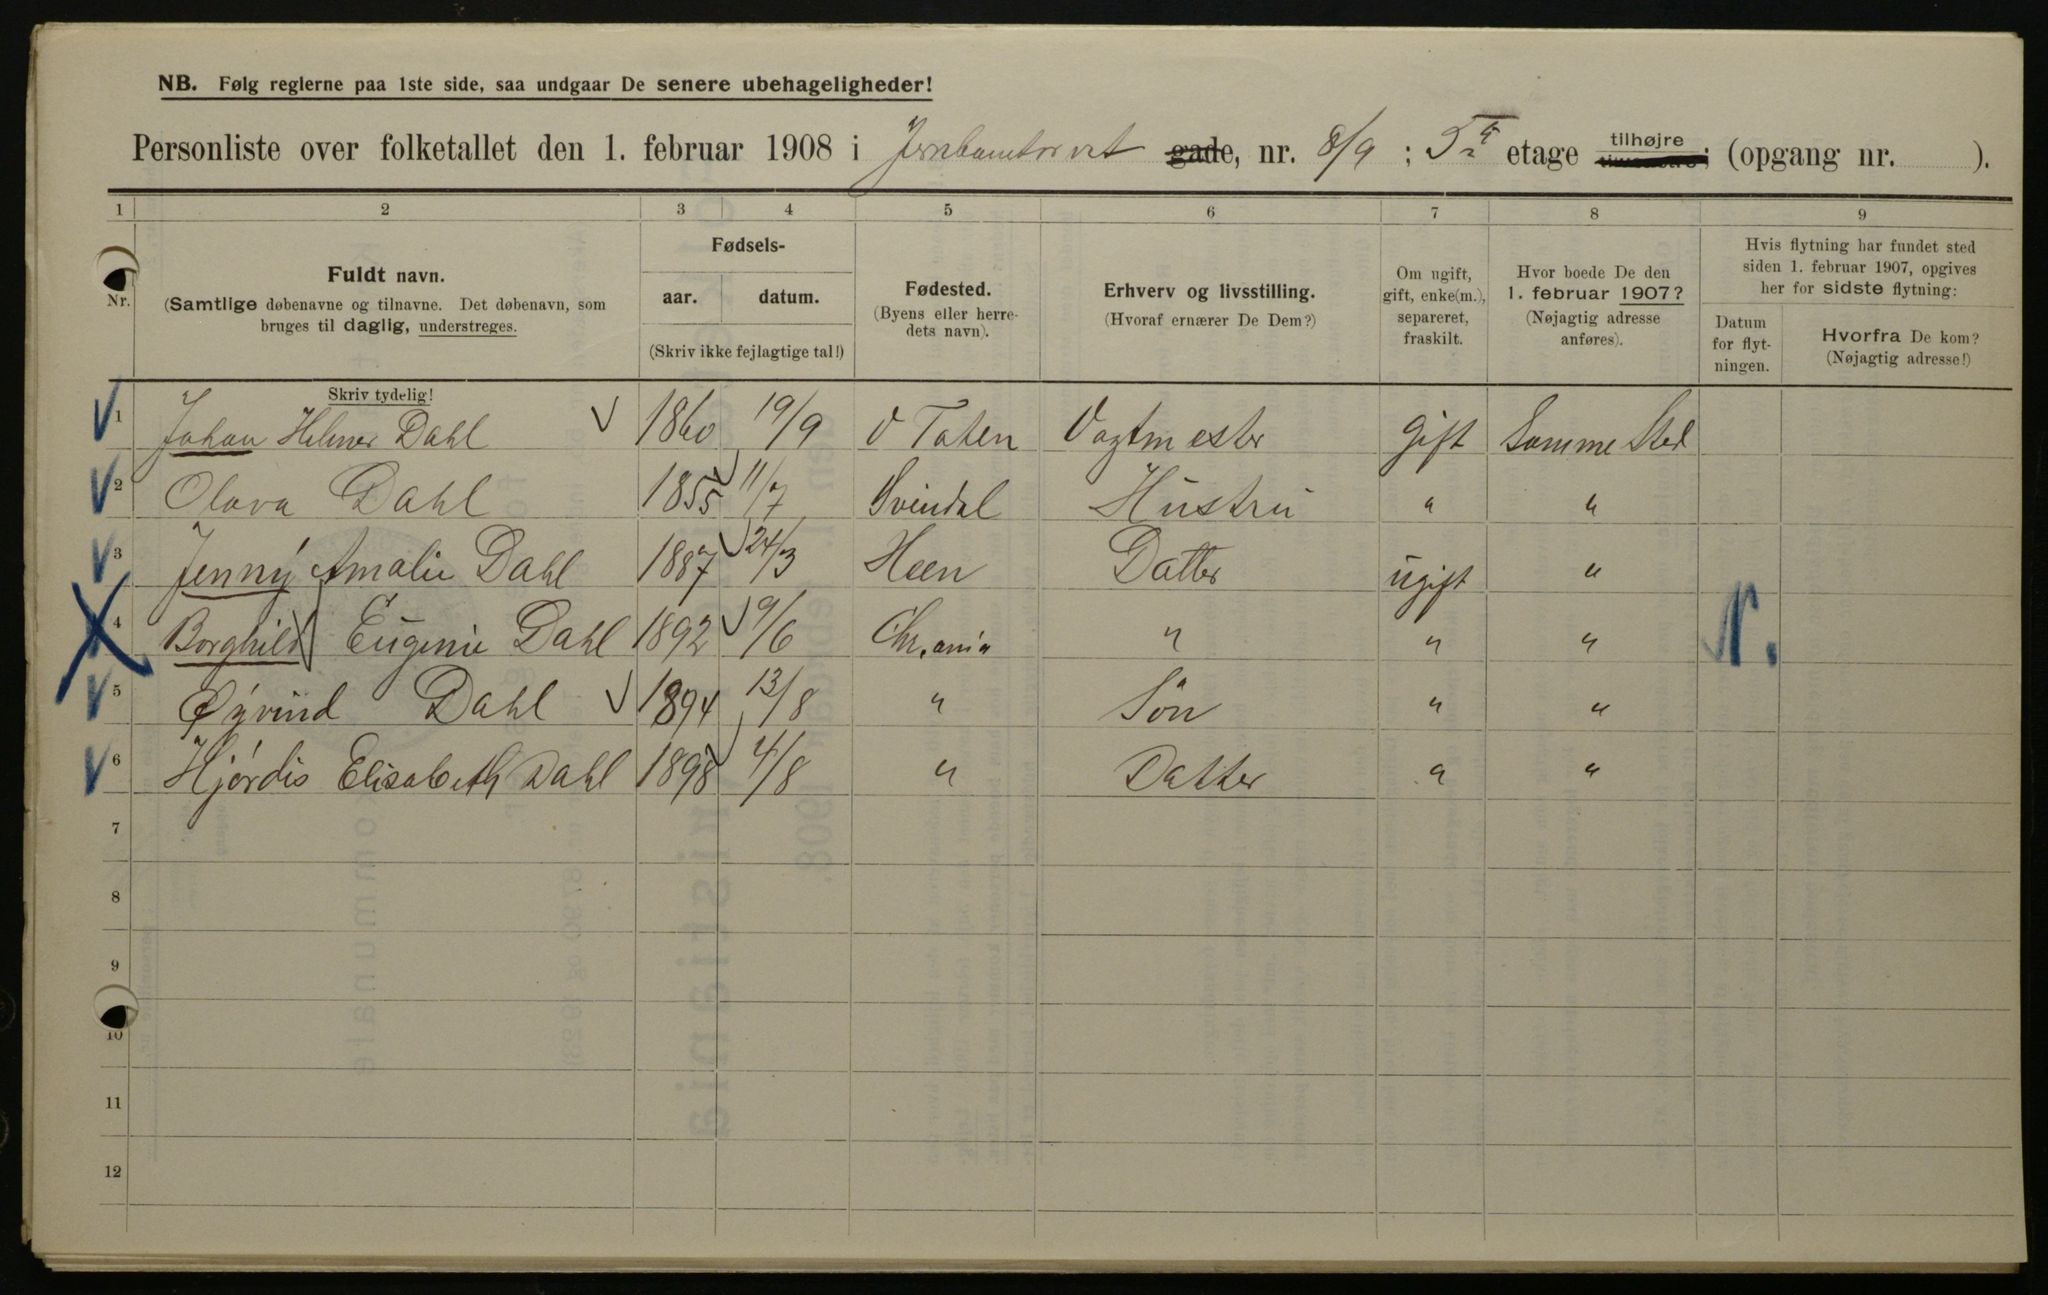 NB. Følg reglerne paa 1ste side, saa undgaar De senere ubehageligheder!
Personliste over folketallet den 1. februar 1908 i Jernbantorvet gade, nr. 8/9 ; 5 etage tilhøjre ; (opgang nr. ).
1 2 3 4 5 6 7 8 9
Nr.
Fuldt navn.
(Samtlige døbenavne og tilnavne. Det døbenavn, som
bruges til daglig, understreges.
Fødsels-
aar. datum.
(Skriv ikke fejlagtige tal!)
Fødested.
(Byens eller herre-
dets navn).
Erhverv og livsstilling.
(Hvoraf ernærer De Dem?)
Om ugift,
gift, enke(m.),
separeret,
fraskilt.
Hvor boede De den
1. februar 1907?
(Nøjagtig adresse
anføres).
Hvis flytning har fundet sted
siden 1. februar 1907, opgives
her for sidste flytning:
Datum
for flyt-
ningen.
Hvorfra De kom?
(Nøjagtig adresse!)
Skriv tydelig!
1 Johan Helmer Dahl 1860 19/9 V Toten Vagtmester gift Samme Sted
2 Olava Dahl 1855 11/7 Svindal Hustru " "
3 Jenny Amalie Dahl 1887 24/3 Heen Datter ugift "
4 Borghild Eugenie Dahl 1892 9/6 Chr.ania " " " N.
5 Øyvind Dahl 1894 13/8 " Søn " "
6 Hjørdis Elisabeth Dahl 1898 4/8 " Datter " "
7
8
9
10
11
12